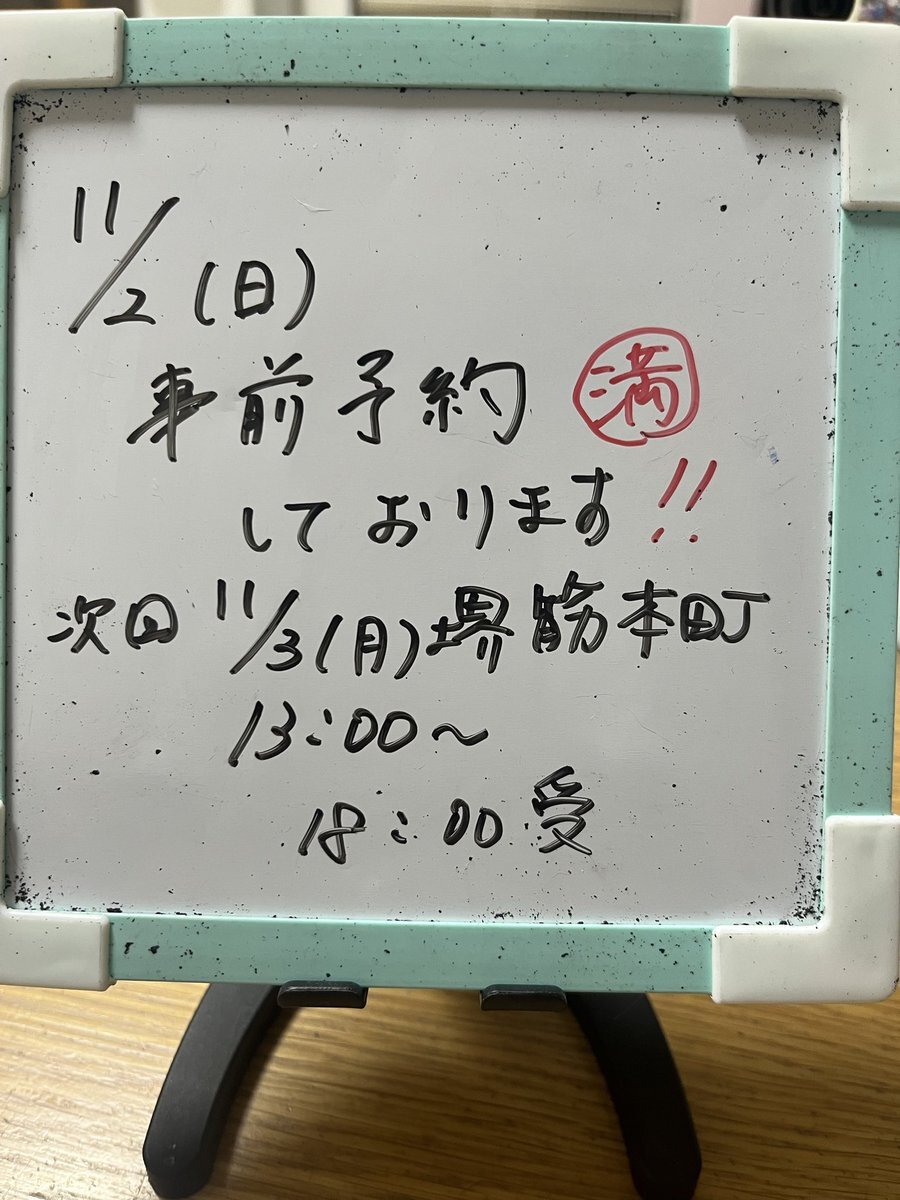 11/2(日)
事前予約 満
しております!!
次回 11/3(月)堺筋本町
13:00~
18:00受